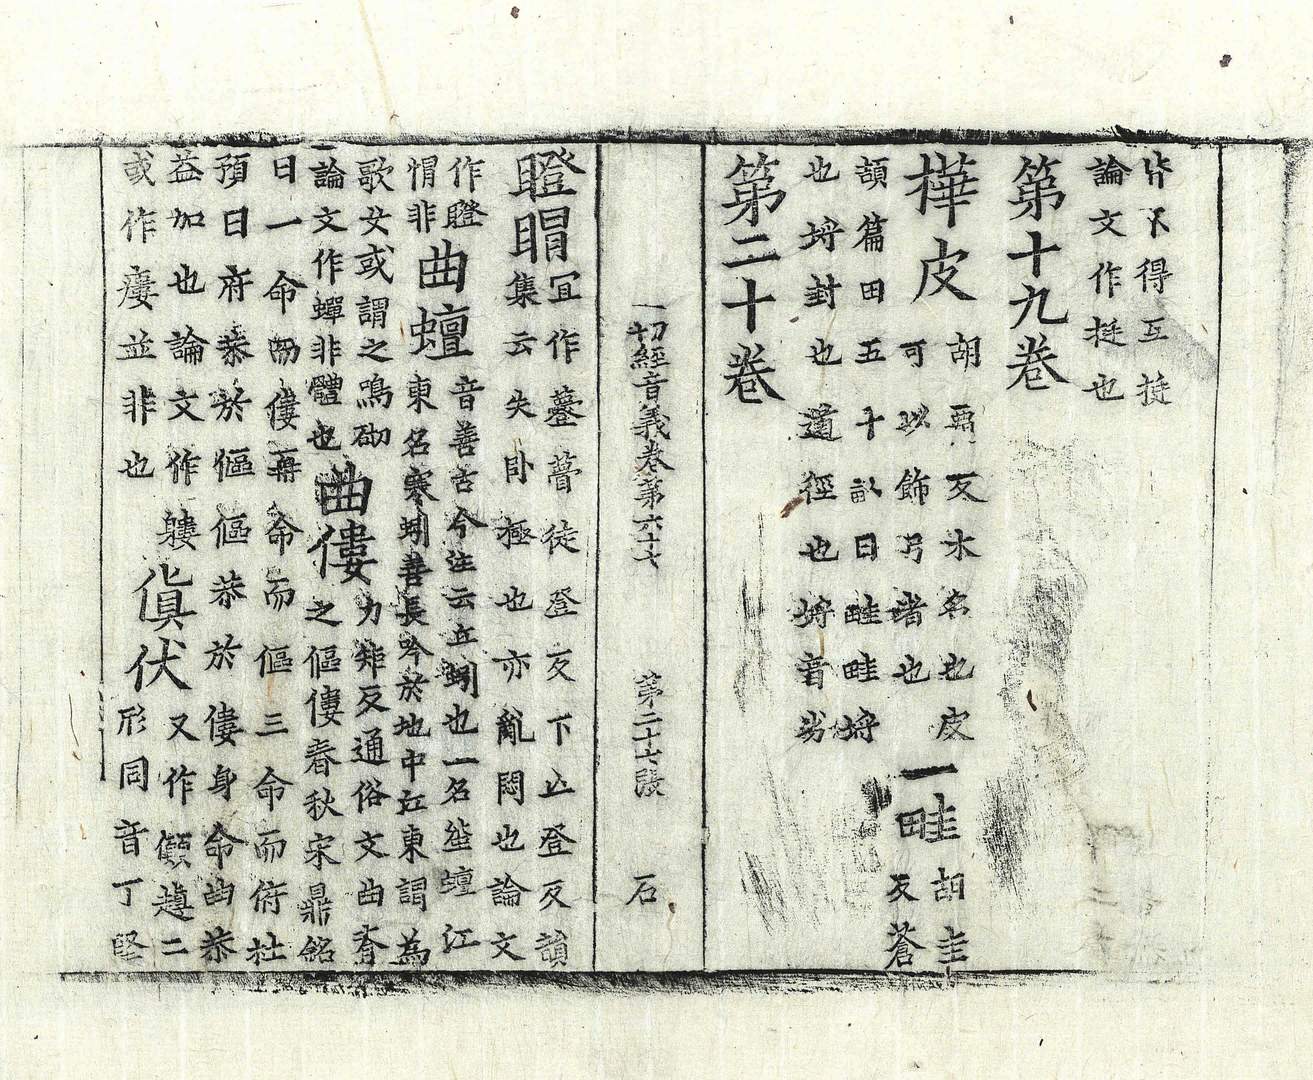 皆不得互挺
論文作挺也
第十九卷
樺皮
胡罵反木名也皮
可以飾弓者也
一畦
胡圭
反蒼
頡篇田五十畝曰畦畦埒
也埒封也道徑也埒音劣
第二十卷
一切經音義卷第六十七 第二十七張 石
瞪
宜作瞢徒登反下亡登反韻
集云失卧極也亦亂悶也論文
作瞪
非
曲蟺
音善古今注云丘蚓也一名蟺江
東名寒蚓善長吟於地中江東謂為
歌女或謂之鳴砌
論文作蟬非體也
曲僂
力矩反通俗文曲脊
之傴僂春秋宋鼎銘
曰一命而僂再命而傴三命而俯杜
預曰府恭於傴傴恭於僂身命曲恭
益加也論文作軁
或作瘻並非也
傎伏
又作顛二
形同音丁堅